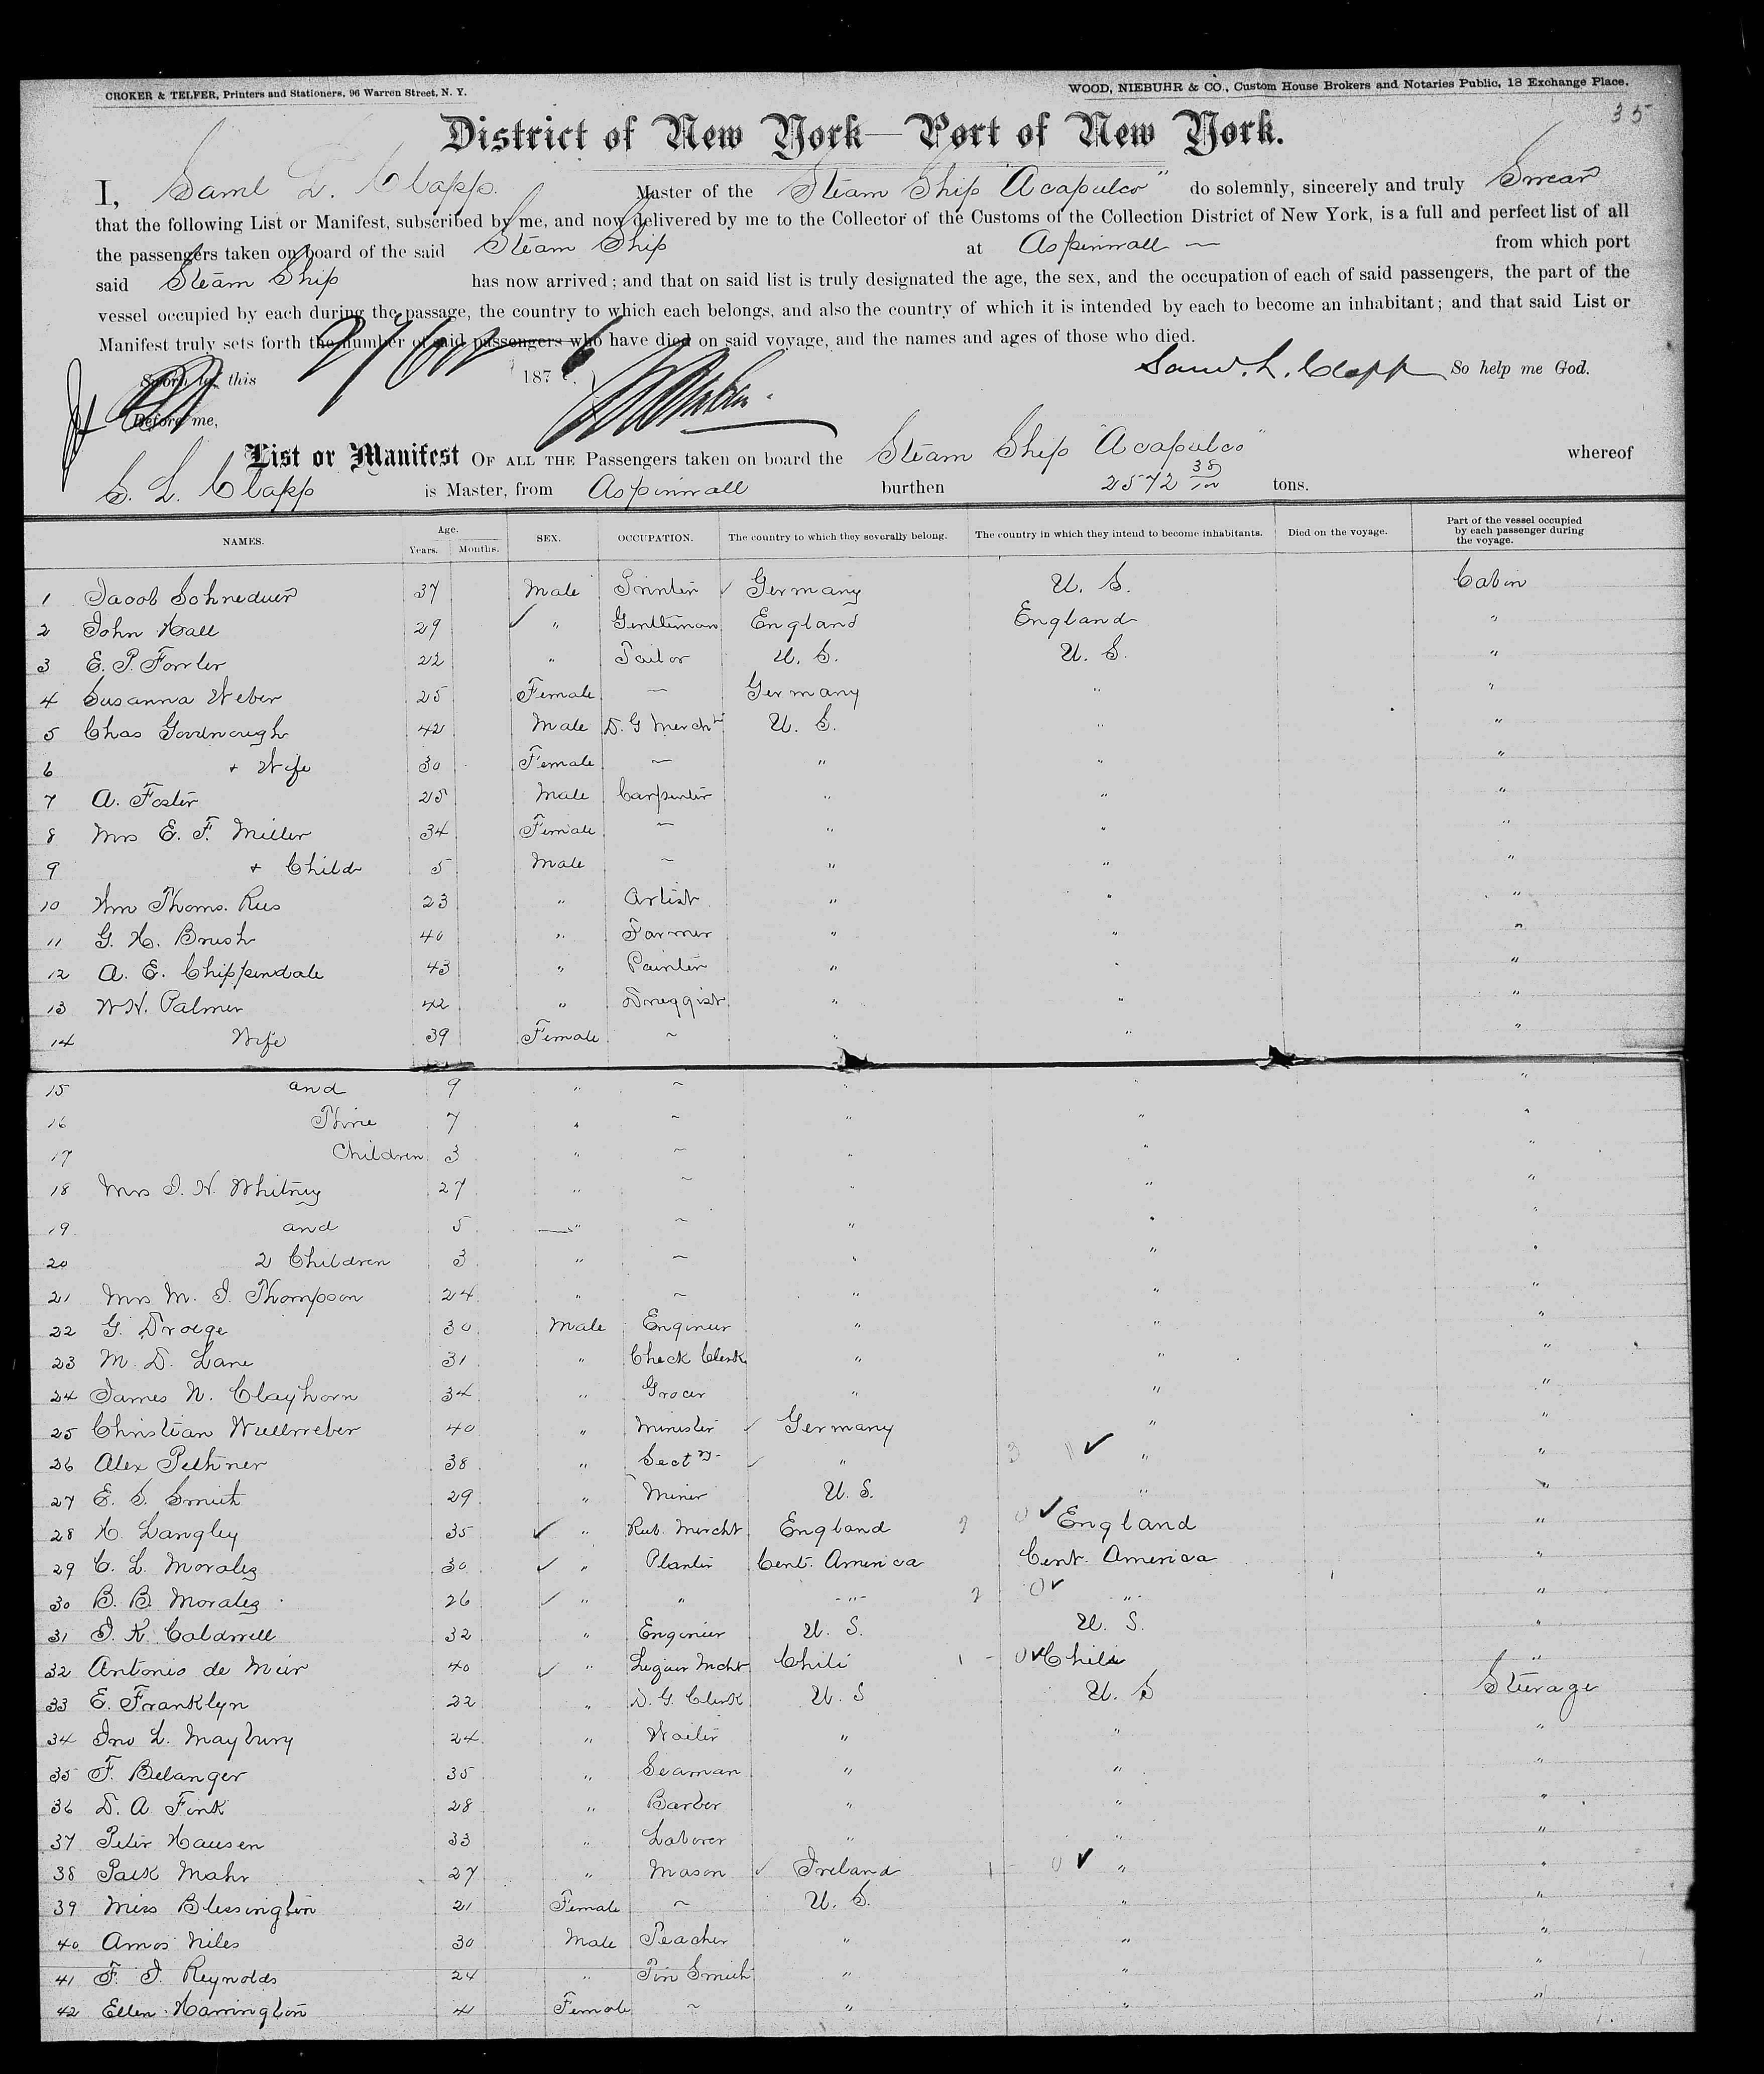 CROKER & TELFER, Printers and Stationers, 96 Warren Street, N. Y.
WOOD, NIEBUHR & CO., Custom House Brokers and Notaries Public, 18 Exchange Place.
35
District of New York—Port of New York.
I, Saml L. Clapp. Master of the Steam Ship "Acapulco" do solemnly, sincerely and truly Swear
that the following List or Manifest, subscribed by me, and now delivered by me to the Collector of the Customs of the Collection District of New York, is a full and perfect list of all
the passengers taken on board of the said Steam Ship at Aspinwall — from which port
said Steam Ship has now arrived; and that on said list is truly designated the age, the sex, and the occupation of each of said passengers, the part of the
vessel occupied by each during the passage, the country to which each belongs, and also the country of which it is intended by each to become an inhabitant; and that said List or
Manifest truly sets forth the number of said passengers who have died on said voyage, and the names and ages of those who died.
Sworn to this 187 Saml. L. Clapp So help me God.
Before me,
List or Manifest OF ALL THE Passengers taken on board the Steam Ship "Acapulco" whereof
S. L. Clapp is Master, from Aspinwall burthen 2572 38/100 tons.
NAMES. Age. Years. Months. SEX. OCCUPATION. The country to which they severally belong. The country in which they intend to become inhabitants. Died on the voyage. Part of the vessel occupied by each passenger during the voyage.
1 Jacob 37 Male Printer ✓ Germany U. S. Cabin
2 John Hall 29 ✓ " Gentleman England England "
3 E. P. Fowler 22 " Tailor U. S. U. S. "
4 Susanna Weber 25 Female — Germany " "
5 Chas Goodnough 42 Male D. G Mercht U. S. " "
6 + Wife 30 Female — " " "
7 A. Foster 25 Male Carpenter " " "
8 Mrs E. F. Miller 34 Female — " " "
9 + Child 5 Male ~ " " "
10 Wm Thoms. Rees 23 " Artist " " "
11 G. H. Brush 40 " Farmer " " "
12 A. E. Chippendale 43 " Painter " " "
13 W H. Palmer 42 " Druggist " " "
14 Wife 39 Female ~ " " "
15 and 9 " ~ " " "
16 Three 7 " ~ " " "
17 Children 3 " ~ " " "
18 Mrs J. H. Whitney 27 " ~ " " "
19 and 5 " ~ " " "
20 2 Children 3 " ~ " " "
21 Mrs M. J. Thompson 24 " ~ " " "
22 G. Droege 30 Male Engineer " " "
23 M. D. Lane 31 " Check Clerk " " "
24 James N. Clayhorn 34 " Grocer " " "
25 Christian Wullweber 40 " Minister ✓ Germany " "
26 Alex 38 " Secty ✓ " 3 ✓ " "
27 E. S. Smith 29 " Miner U. S. " "
28 H. Langley 35 ✓ " Mercht England 0 ✓ England "
29 C. L. Morales 30 ✓ " Planter Cent. America Cent. America "
30 B. B. Morales 26 ✓ " " " 2 0 ✓ " "
31 J. K. Caldwell 32 " Engineer U. S. U. S. "
32 Antonio de Meir 40 ✓ " Mcht Chili 1 - 0 ✓ Chili "
33 E. Franklyn 22 " D. G. Clerk U. S U. S Steerage
34 Jno L. Maybury 24 " Waiter " " "
35 F. Belanger 35 " Seaman " " "
36 D. A. Fink 28 " Barber " " "
37 Peter Hausen 33 " Laborer " " "
38 Patk Mahr 27 " Mason ✓ Ireland 1 - 0 ✓ " "
39 Miss Blessington 21 Female ~ U. S. " "
40 Amos Niles 30 Male Teacher " " "
41 F. J. Reynolds 24 " Tin Smith " " "
42 Ellen Harrington 41 Female ~ " " "